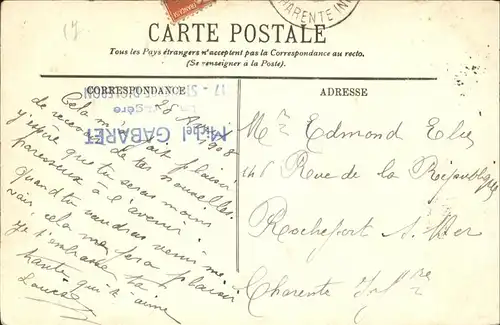 CHARENTE IN
CARTE POSTALE
Tous les Pays étrangers n'acceptent pas la Correspondance au recto.
(Se renseigner à la Poste).
CORRESPONDANCE
ADRESSE
28 1908
Cela m'a fait plaisir
de recevoir de tes nouvelles.
j'espère que tu seras moins
paresseux à l'avenir
quand tu voudras venir me
voir, cela me fera plaisir
Je t'embrasse ta
tante qui t'aime
Louise
17 - ST D'OLERON
GABARET
Mr Edmond Elie
146 Rue de la République
Rochefort s. Mer
Charente Infre